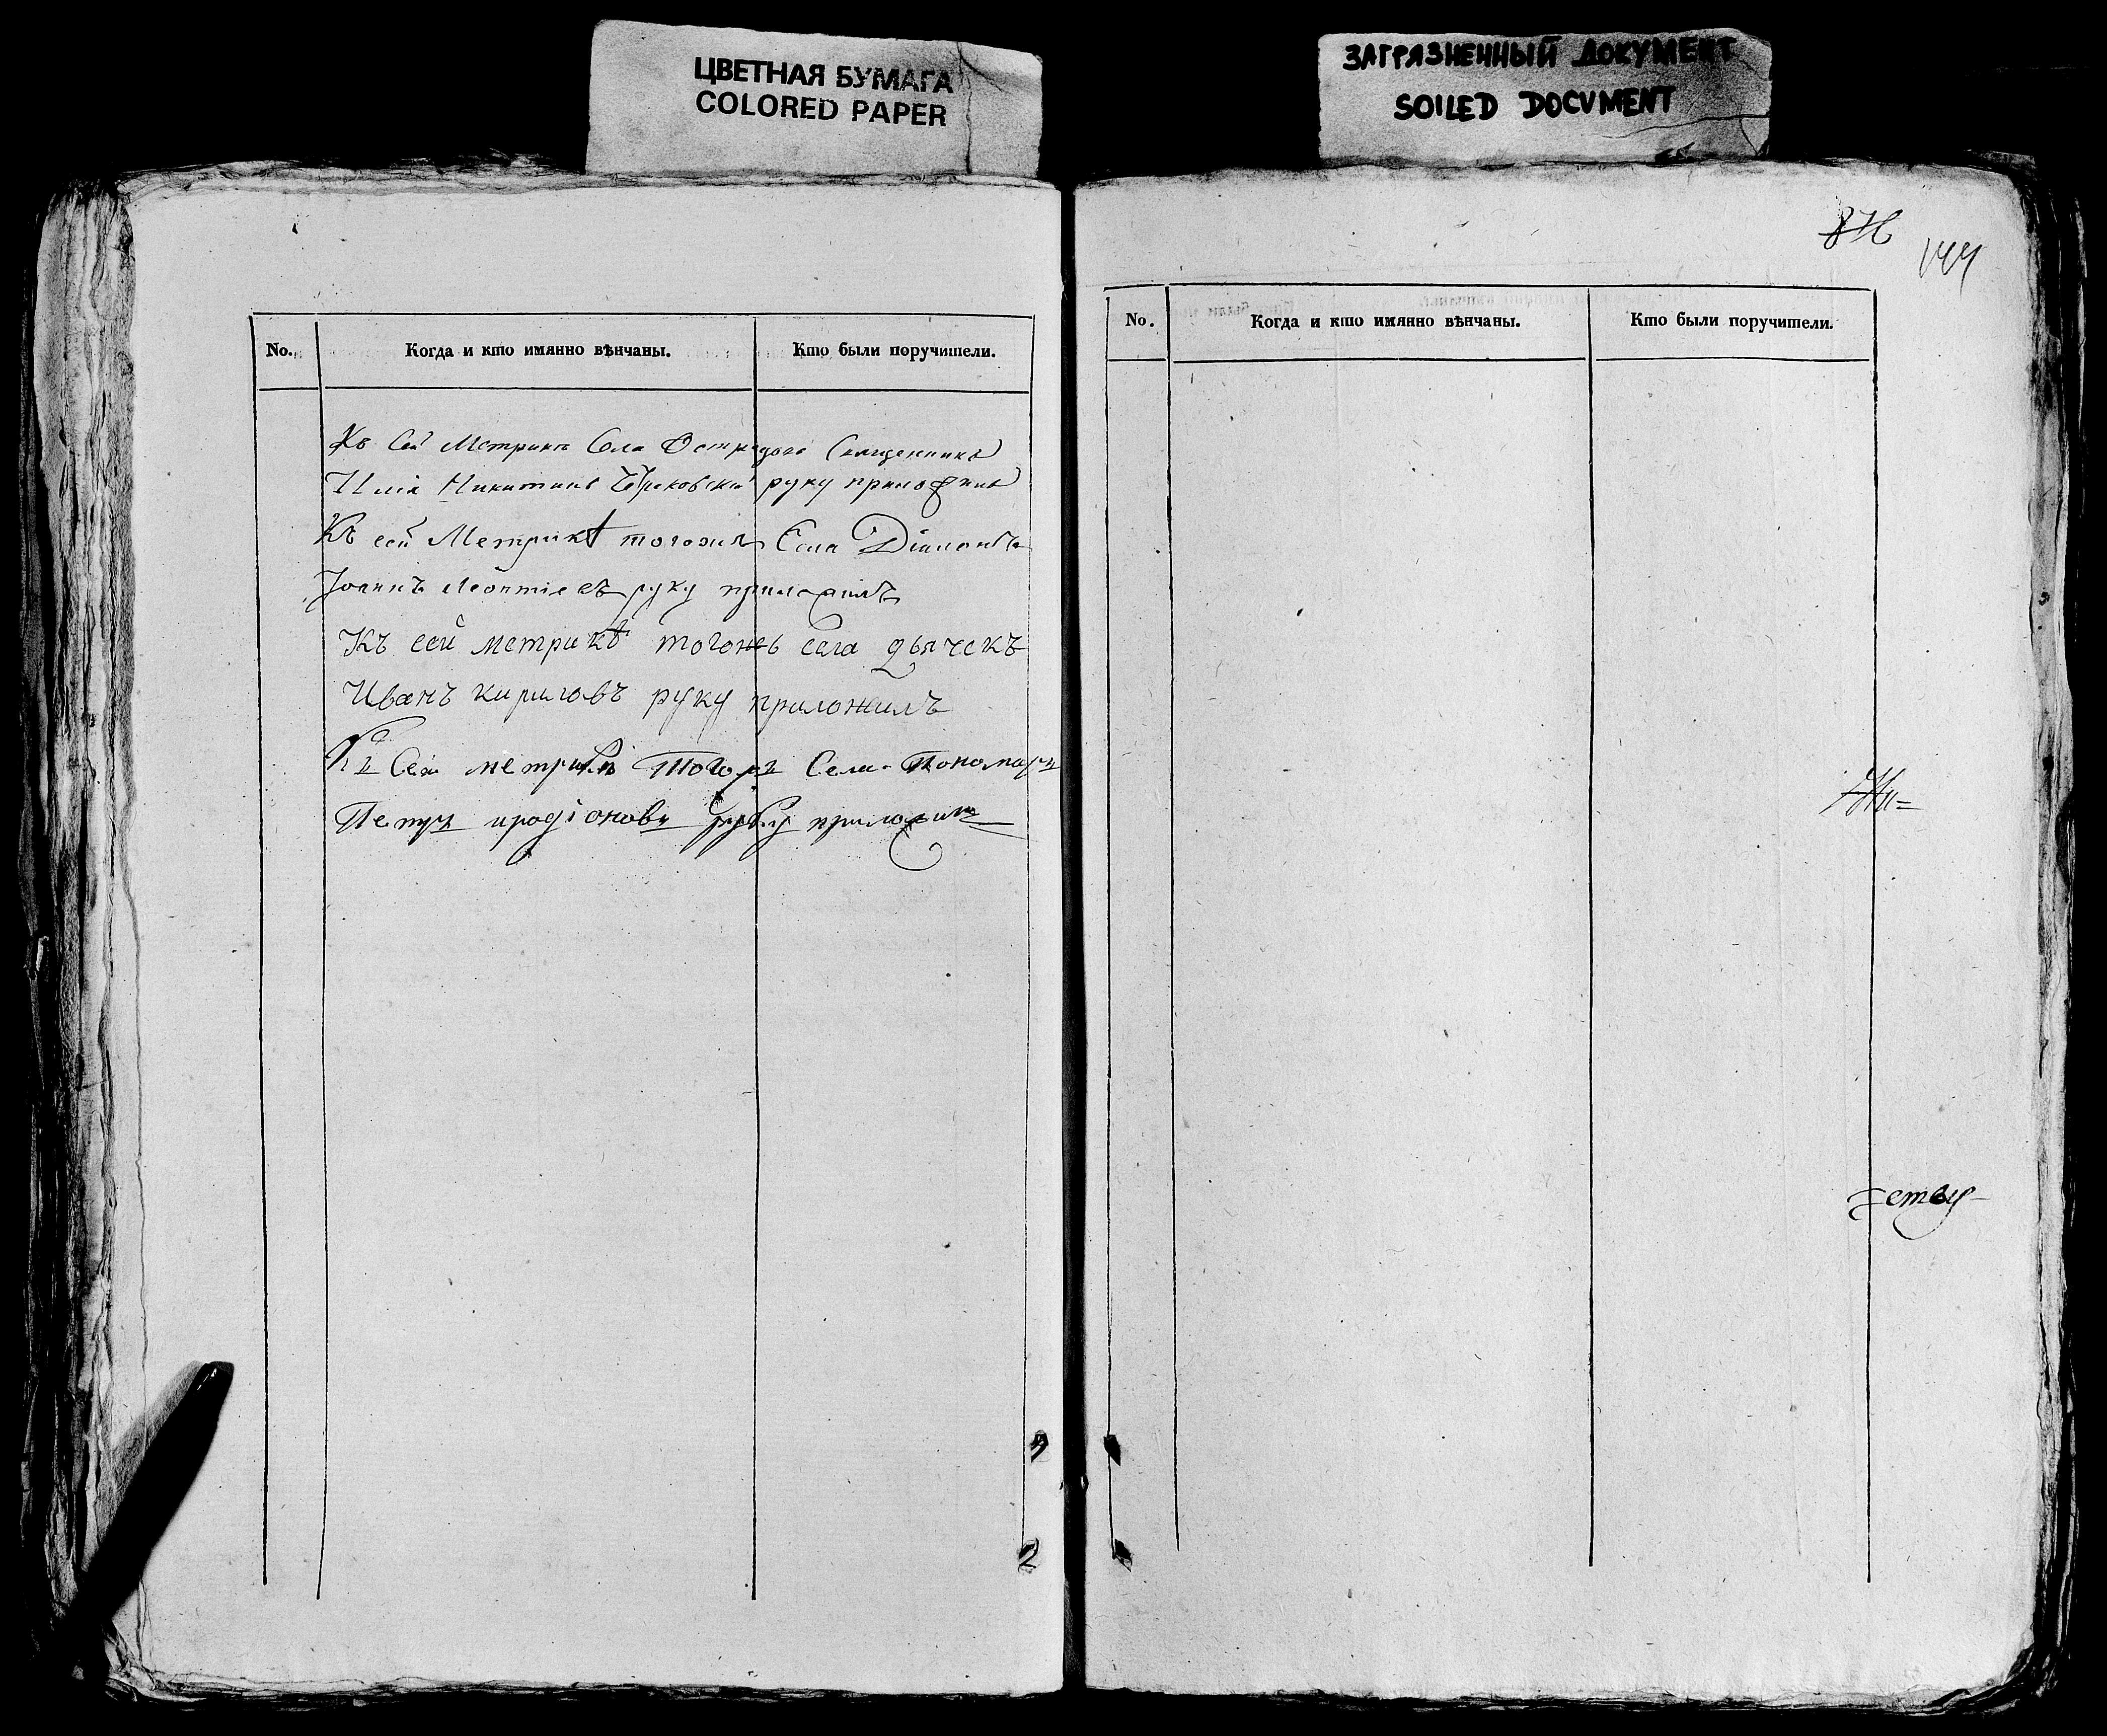 ЦВЕТНАЯ БУМАГА
COLORED PAPER
ЗАГРЯЗНЕННЫЙ ДОКУМЕНТ
SOILED DOCUMENT
No. Когда и кто имянно вѣнчаны. Кто были поручители.
Къ Сей Метрикѣ Села Священникъ
Илія Никитинъ руку приложилъ
Къ сей Метрикѣ тогожъ Села Діаконъ
Іоаннъ Леонтіевъ руку приложилъ
Къ сей метрикѣ тогожъ села дьячекъ
Иванъ кириловъ руку приложилъ
Къ Сей метрикѣ Тогожъ Села Пономарь
Петръ иродіоновъ руку приложилъ
876
144
No. Когда и кто имянно вѣнчаны. Кто были поручители.